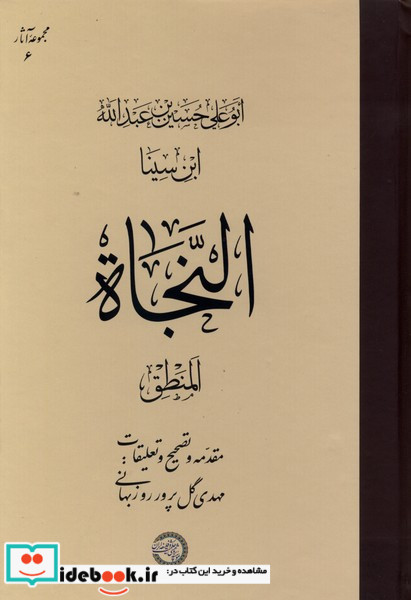 مجموعهٔ آثار
۶
ابو علي حُسين بن عبد اللّٰه
ابن سينا
النَّجَاة
المَنطِق
مقدّمه و تصحیح و تعلیقات:
مهدی گل پرور روزبهانی
مشاهده و خرید این کتاب در:
idebook.ir